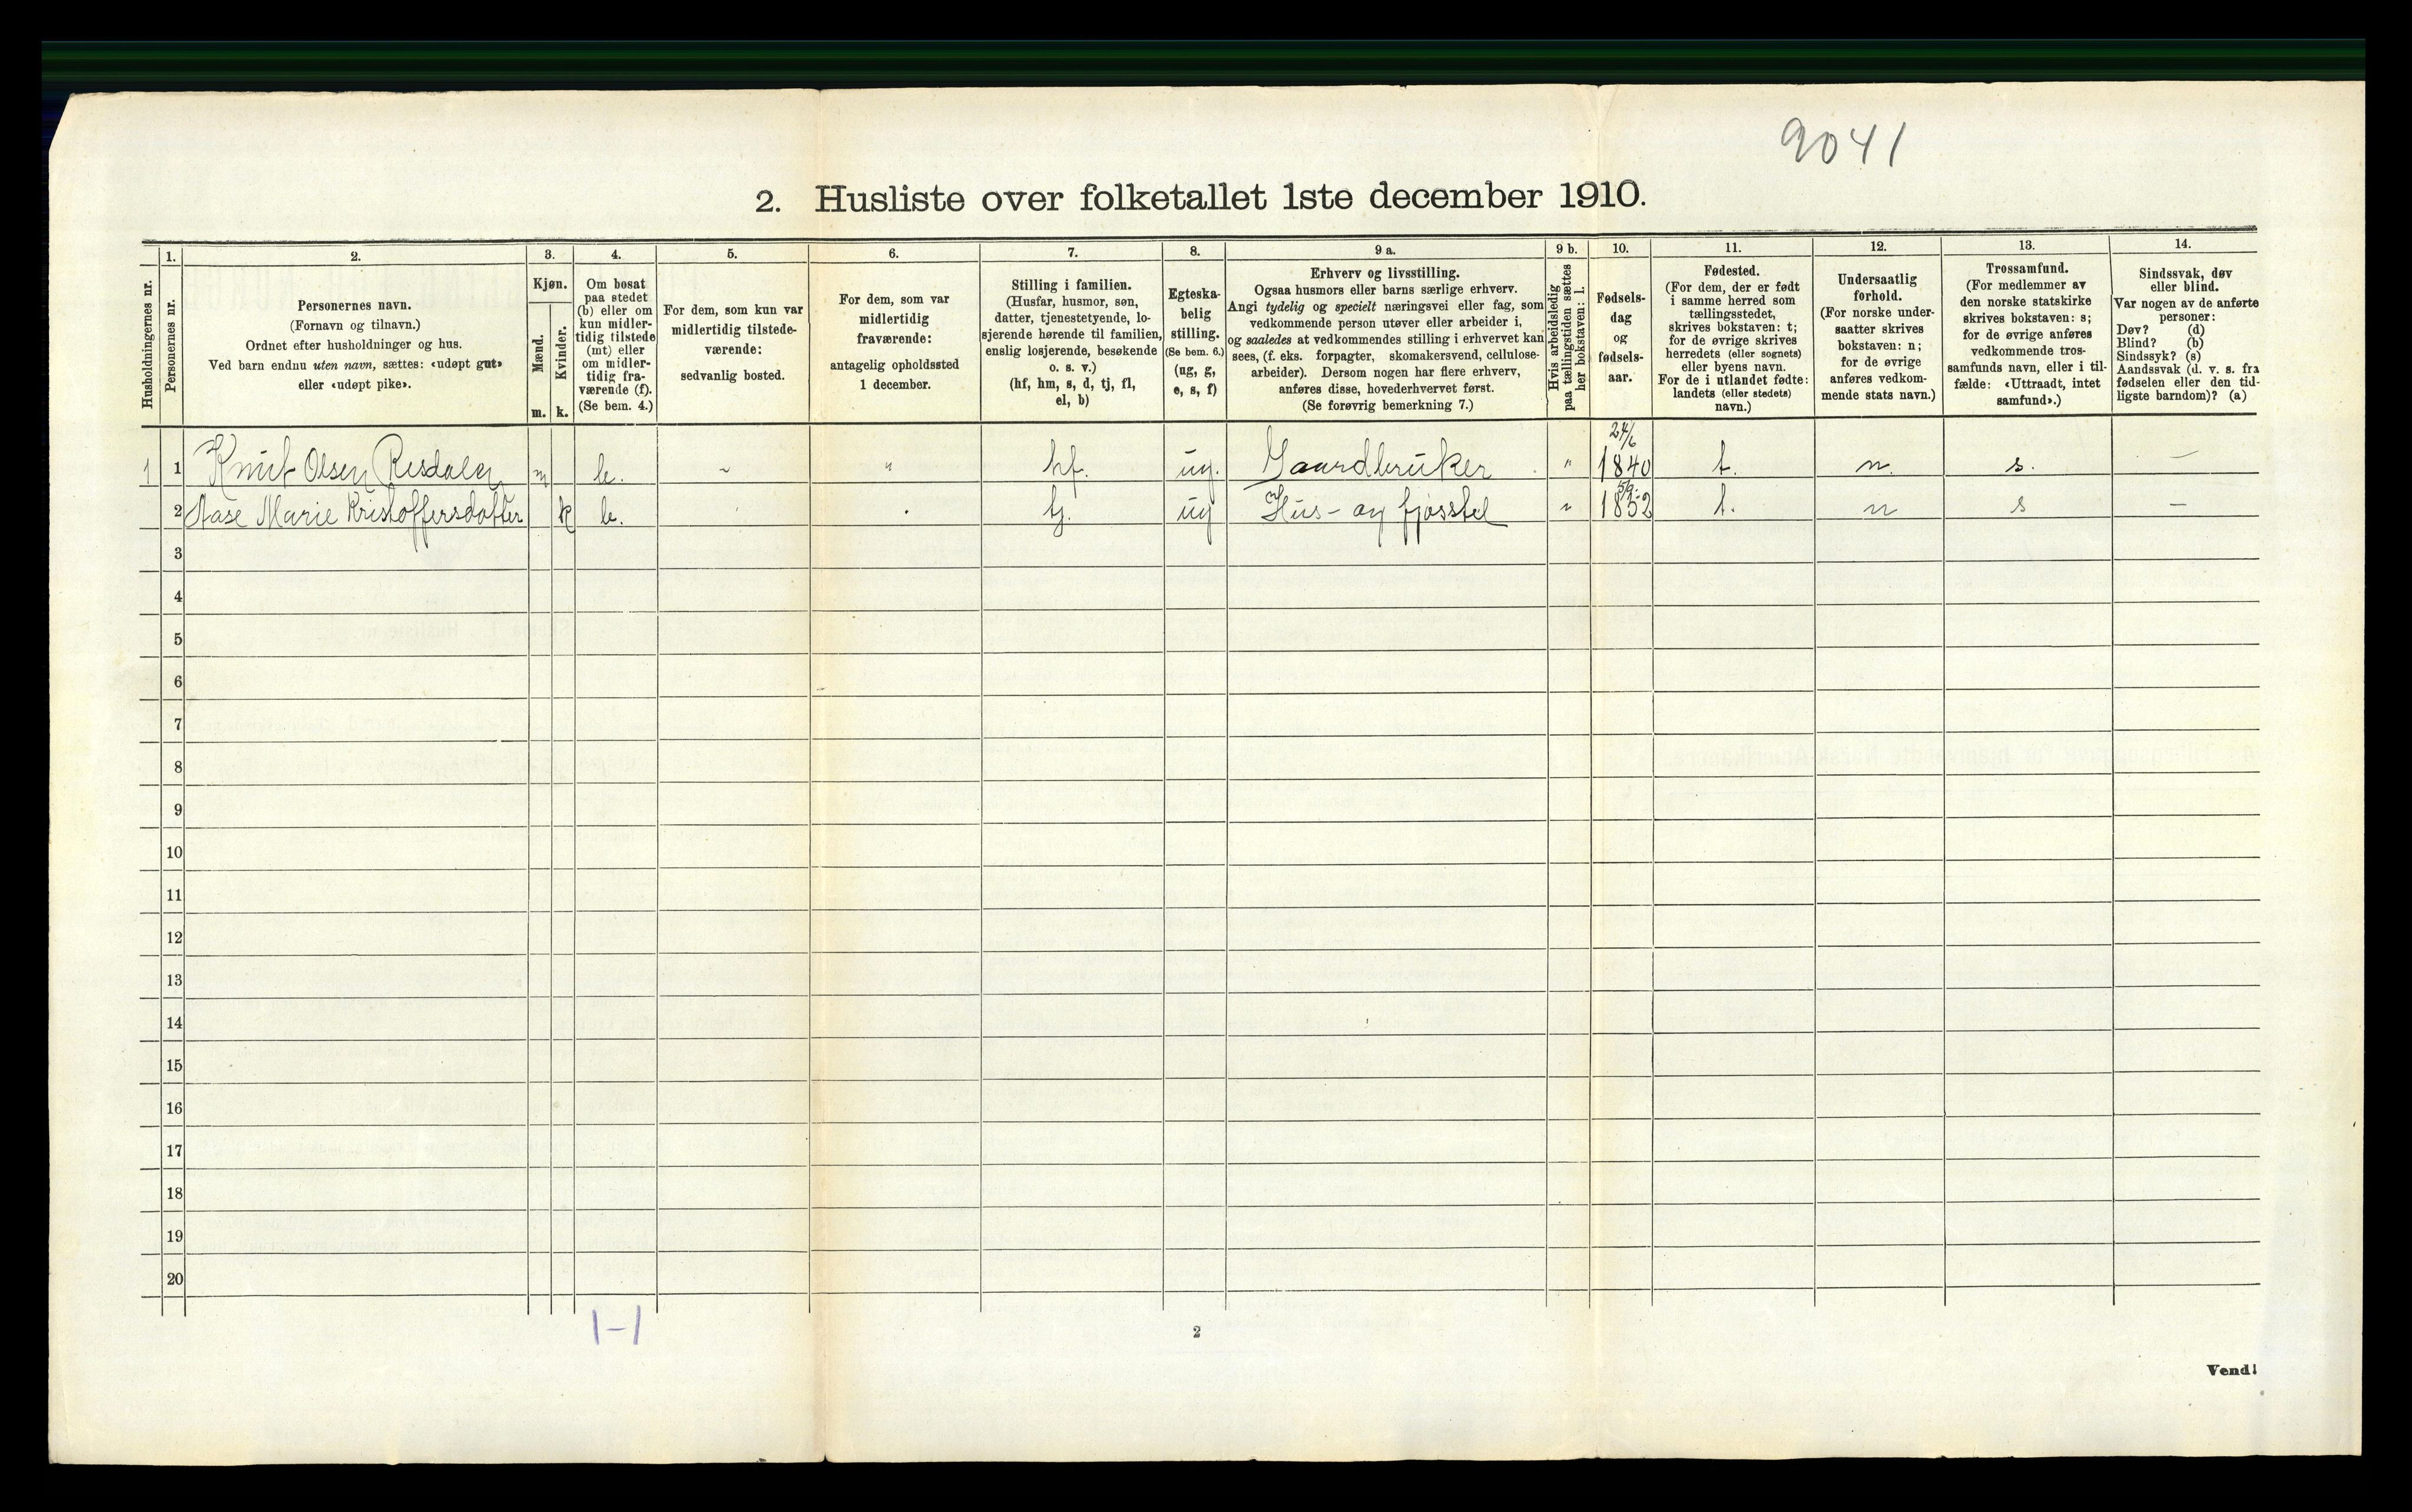 9041
2. Husliste over folketallet 1ste december 1910.
Husholdningernes nr.
1.
Personernes nr.
2.
Personernes navn.
(Fornavn og tilnavn.)
Ordnet efter husholdninger og hus.
Ved barn endnu uten navn, sættes: «udøpt gut»
eller «udøpt pike».
3.
Kjøn.
Mænd.
m.
Kvinder.
k.
4.
Om bosat
paa stedet
(b) eller om
kun midler-
tidig tilstede
(mt) eller
om midler-
tidig fra-
værende (f).
(Se bem. 4.)
5.
For dem, som kun var
midlertidig tilstede-
værende:
sedvanlig bosted.
6.
For dem, som var
midlertidig
fraværende:
antagelig opholdssted
1 december.
7.
Stilling i familien.
(Husfar, husmor, søn,
datter, tjenestetyende, lo-
sjerende hørende til familien,
enslig losjerende, besøkende
o. s. v.)
(hf, hm, s, d, tj, fl,
el, b)
8.
Egteska-
belig
stilling.
(Se bem. 6.)
(ug, g,
e, s, f)
9 a.
Erhverv og livsstilling.
Ogsaa husmors eller barns særlige erhverv.
Angi tydelig og specielt næringsvei eller fag, som
vedkommende person utøver eller arbeider i,
og saaledes at vedkommendes stilling i erhvervet kan
sees, (f. eks. forpagter, skomakersvend, cellulose-
arbeider). Dersom nogen har flere erhverv,
anføres disse, hovederhvervet først.
(Se forøvrig bemerkning 7.)
9 b.
Hvis arbeidsledig
paa tællingstiden sættes
her bokstaven: l.
10.
Fødsels-
dag
og
fødsels-
aar.
11.
Fødested.
(For dem, der er født
i samme herred som
tællingsstedet,
skrives bokstaven: t;
for de øvrige skrives
herredets (eller sognets)
eller byens navn.
For de i utlandet fødte:
landets (eller stedets)
navn.)
12.
Undersaatlig
forhold.
(For norske under-
saatter skrives
bokstaven: n;
for de øvrige
anføres vedkom-
mende stats navn.)
13.
Trossamfund.
(For medlemmer av
den norske statskirke
skrives bokstaven: s;
for de øvrige anføres
vedkommende tros-
samfunds navn, eller i til-
fælde: «Uttraadt, intet
samfund».)
14.
Sindssvak, døv
eller blind.
Var nogen av de anførte
personer:
Døv? (d)
Blind? (b)
Sindssyk? (s)
Aandssvak (d. v. s. fra
fødselen eller den tid-
ligste barndom)? (a)
1 1 Knut Olsen Risdalen m b. " " hf. ug. Gaardbruker " 24/6 1840 t. n. s. —
2 Aase Marie Kristoffersdatter k b. tj. ug Hus- og fjøsstel " 5/9. 1852 t. n s —
3
4
5
6
7
8
9
10
11
12
13
14
15
16
17
18
19
20
1-1
2
Vend!